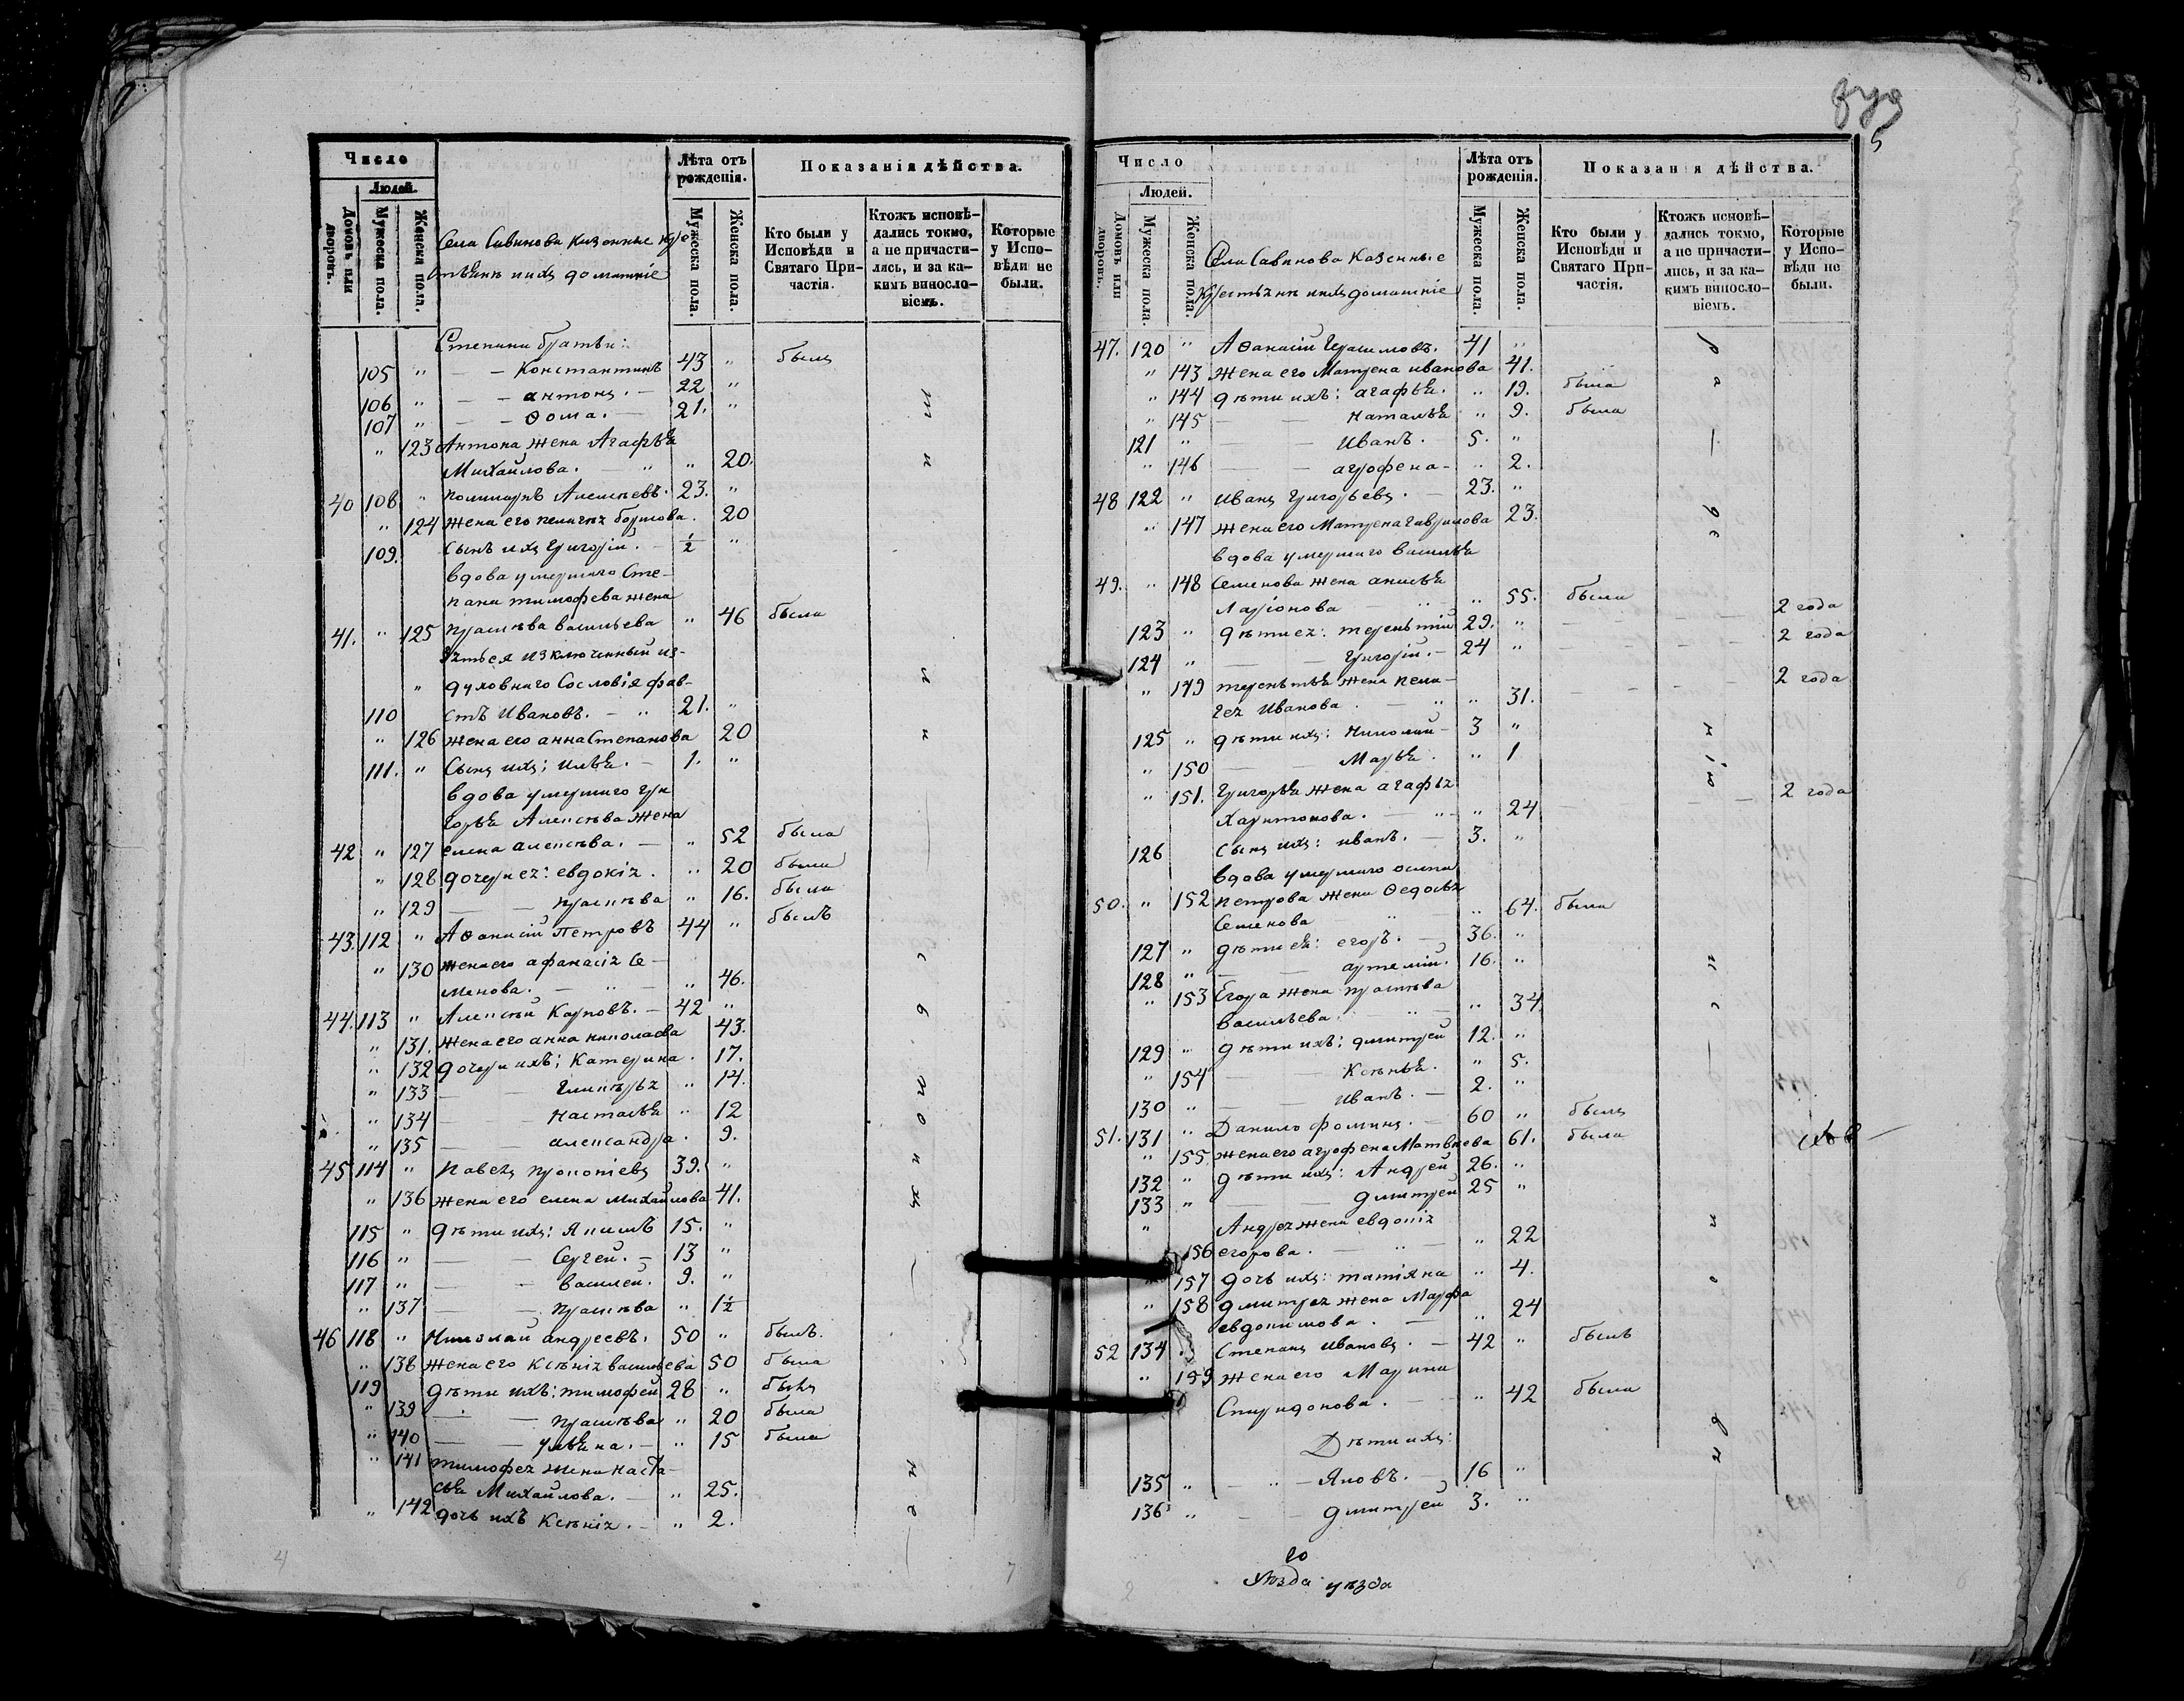 Число
Людей.
Домовъ или дворовъ.
Мужеска пола.
Женска пола.
Села Савинова казенные кре-
стьяне и ихъ домашніе
Лѣта отъ рожденія.
Мужеска пола.
Женска пола.
Показанія дѣйства.
Кто были у Исповѣди и Святаго Причастія.
Ктожъ исповѣ-
дались токмо,
а не причасти-
лись, и за ка-
кимъ винословіемъ.
Которые у Испо-
вѣди не были.
Степана братья:
105 " — — Константинъ 43 " былъ
106 " — — антонъ. — 22 "
107 " — — Ѳома. — 21. "
" 123 Антона жена Агафья
Михайлова. — " " 20.
40 108 " Алексѣевъ. 23. "
" 124 жена его Борисова. 20
109. сынъ ихъ Григорій. — 1/2 "
вдова умершаго Сте-
пана тимофеева жена
41. " 125 прасковья васильева " 46 была
изключенный из-
" духовнаго Сословія фав-
110 стъ Ивановъ. — " 21. "
" 126 жена его анна Степанова 20
111. " Сынъ ихъ: илья. — 1. "
вдова умершаго гри
горья Алексѣева жена
42 " 127 елена алексѣева. — " 52 была
" 128 дочери ея: евдокія. " 20 была
" 129 — — прасковья " 16. была
43. 112 " Аѳанасій Петровъ 44 " былъ
" 130 жена его афанасія Се-
менова. — " — " 46.
44. 113 " Алексѣй Карповъ. — 42 "
" 131. жена его анна николаева 43.
" 132 дочери ихъ: Катерина. 17.
" 133 — — гликерья " 14.
" 134 — — настасья " 12
" 135 — — александра. 9.
45 114 " Павелъ прокопіевъ 39. "
" 136 жена его елена михайлова 41.
115 " дѣти ихъ: Якимъ 15. "
116 " — — Сергей. — 13 "
117 " — — василей. 9. "
" 137 — — прасковья " 1 1/2
46 118 " Николай андреевъ. 50 " былъ.
" 138 жена его Ксенія васильева 50 была
119 дѣти ихъ: тимофей 28 " былъ
" 139 — — прасковья " 20 была
" 140 — — ульяна. — " 15 была
" 141 тимофея жена наста-
сья Михайлова. — " 25.
" 142 дочь ихъ Ксенія. — " 2.
5
Число
Людей.
Домовъ или дворовъ.
Мужеска пола.
Женска пола.
Села Савинова Казенные
Крестьяне и ихъ домашніе
Лѣта отъ рожденія.
Мужеска пола.
Женска пола.
Показанія дѣйства.
Кто были у Исповѣди и Святаго Причастія.
Ктожъ исповѣ-
дались токмо,
а не причасти-
лись, и за ка-
кимъ винословіемъ.
Которые у Испо-
вѣди не были.
47. 120 " Аѳанасій Герасимовъ. 41 "
" 143 жена его Матрена иванова 41.
" 144 дѣти ихъ: агафья. " 19. была
" 145 — — наталья " 9. была
121 " — — Иванъ. — 5. "
" 146 — — агрофена — " 2.
48 122 " иванъ григорьевъ. — 23. "
" 147 жена его Матрена гаврилова 23.
вдова умершаго василья
49. " 148 Семенова жена анисья
Ларіонова — " — " 55. была
123 " дѣти ея: терентій 29. " — — 2 года
124 " — — Григорій. — 24 " — — 2 года
" 149 терентья жена пела-
гея Иванова. — " " 31. — — 2 года
125 " дѣти ихъ: Николай — 3 "
" 150 — — Марья. " 1
" 151. Григорья жена агафья
Харитонова. — " — " 24 — — 2 года
126 Сынъ ихъ: иванъ. — 3. "
вдова умершаго осипа
50. " 152 петрова жена Ѳедосья
Семенова " — " 64. была
127 " дѣти ея: егоръ. — 36. "
128 " — — артемій. 16. "
" 153 Егора жена прасковья
Васильева. — " — " 34.
129 " дѣти ихъ: дмитрей 12. "
" 154 — — Ксенья. " 5.
130 " — — Иванъ. — 2. "
51. 131 " Данило фоминъ. — 60 " былъ
" 155 жена его агрофена Матвѣева 61. была
132 " дѣти ихъ: Андрей 26. "
133 " — — дмитрей 25 "
" Андрея жена евдокія
156 егорова. — " — " 22
157 дочь ихъ: татіяна " 4.
" 158 дмитрея жена Марфа
евдокимова. — " 24
52 134 " Степанъ Ивановъ. — 42 " былъ
" 159 жена его Марина
Спиридонова. — " 42 была
Дѣти ихъ:
135 " — " — Яковъ. — 16 "
136 " — — дмитрей 3. "
го
уѣзда уѣзда